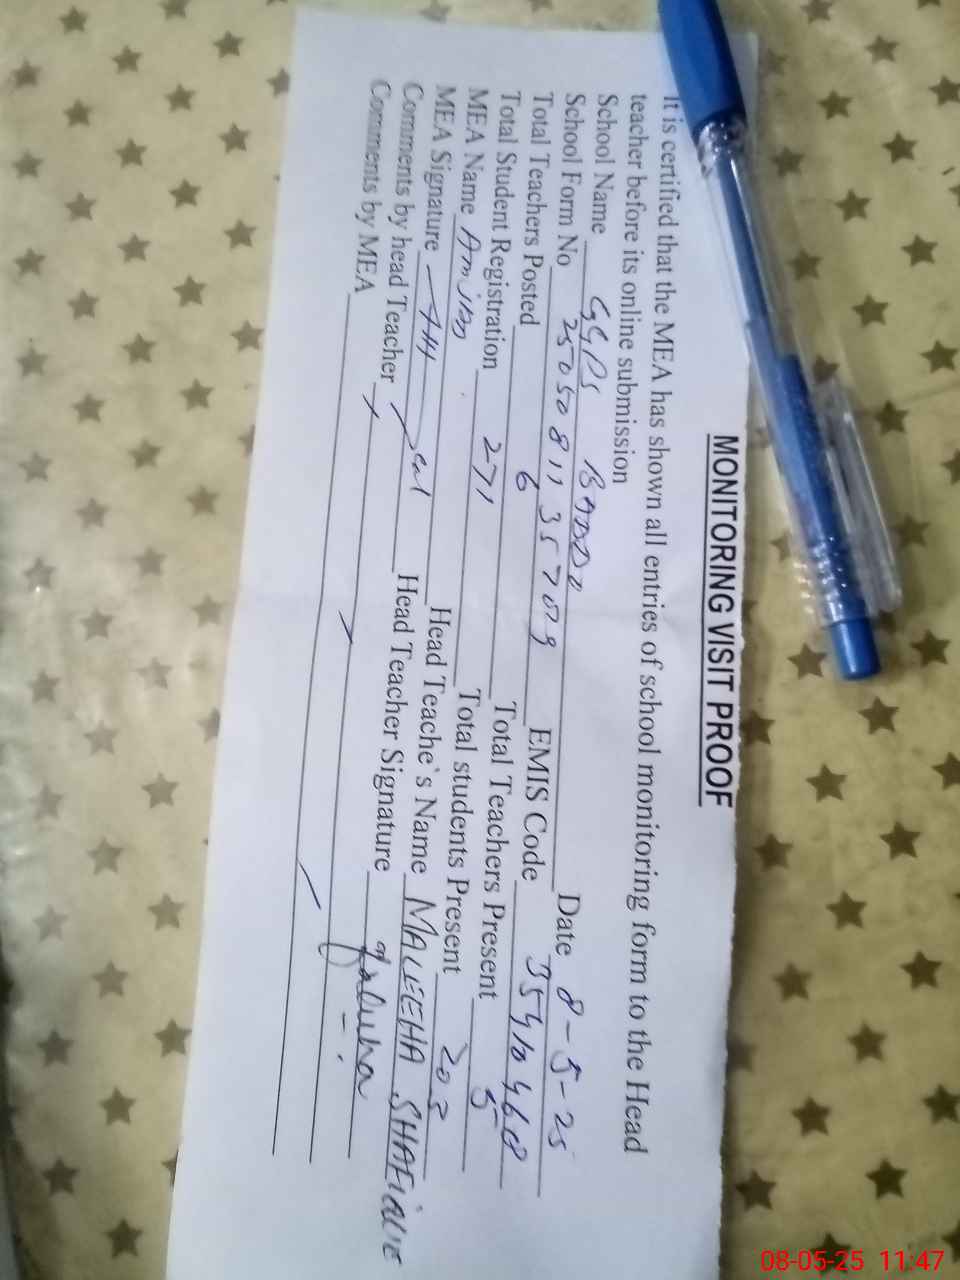 MONITORING VISIT PROOF
It is certified that the MEA has shown all entries of school monitoring form to the Head
teacher before its online submission
School Name GGPS Date 8-5-25
School Form No 2505081135709 EMIS Code
Total Teachers Posted 6 Total Teachers Present 5
Total Student Registration 271 Total students Present 203
MEA Name Head Teache`s Name MALEEHA SHAFIQUE
MEA Signature Head Teacher Signature
Comments by head Teacher
Comments by MEA
08-05-25 11:47